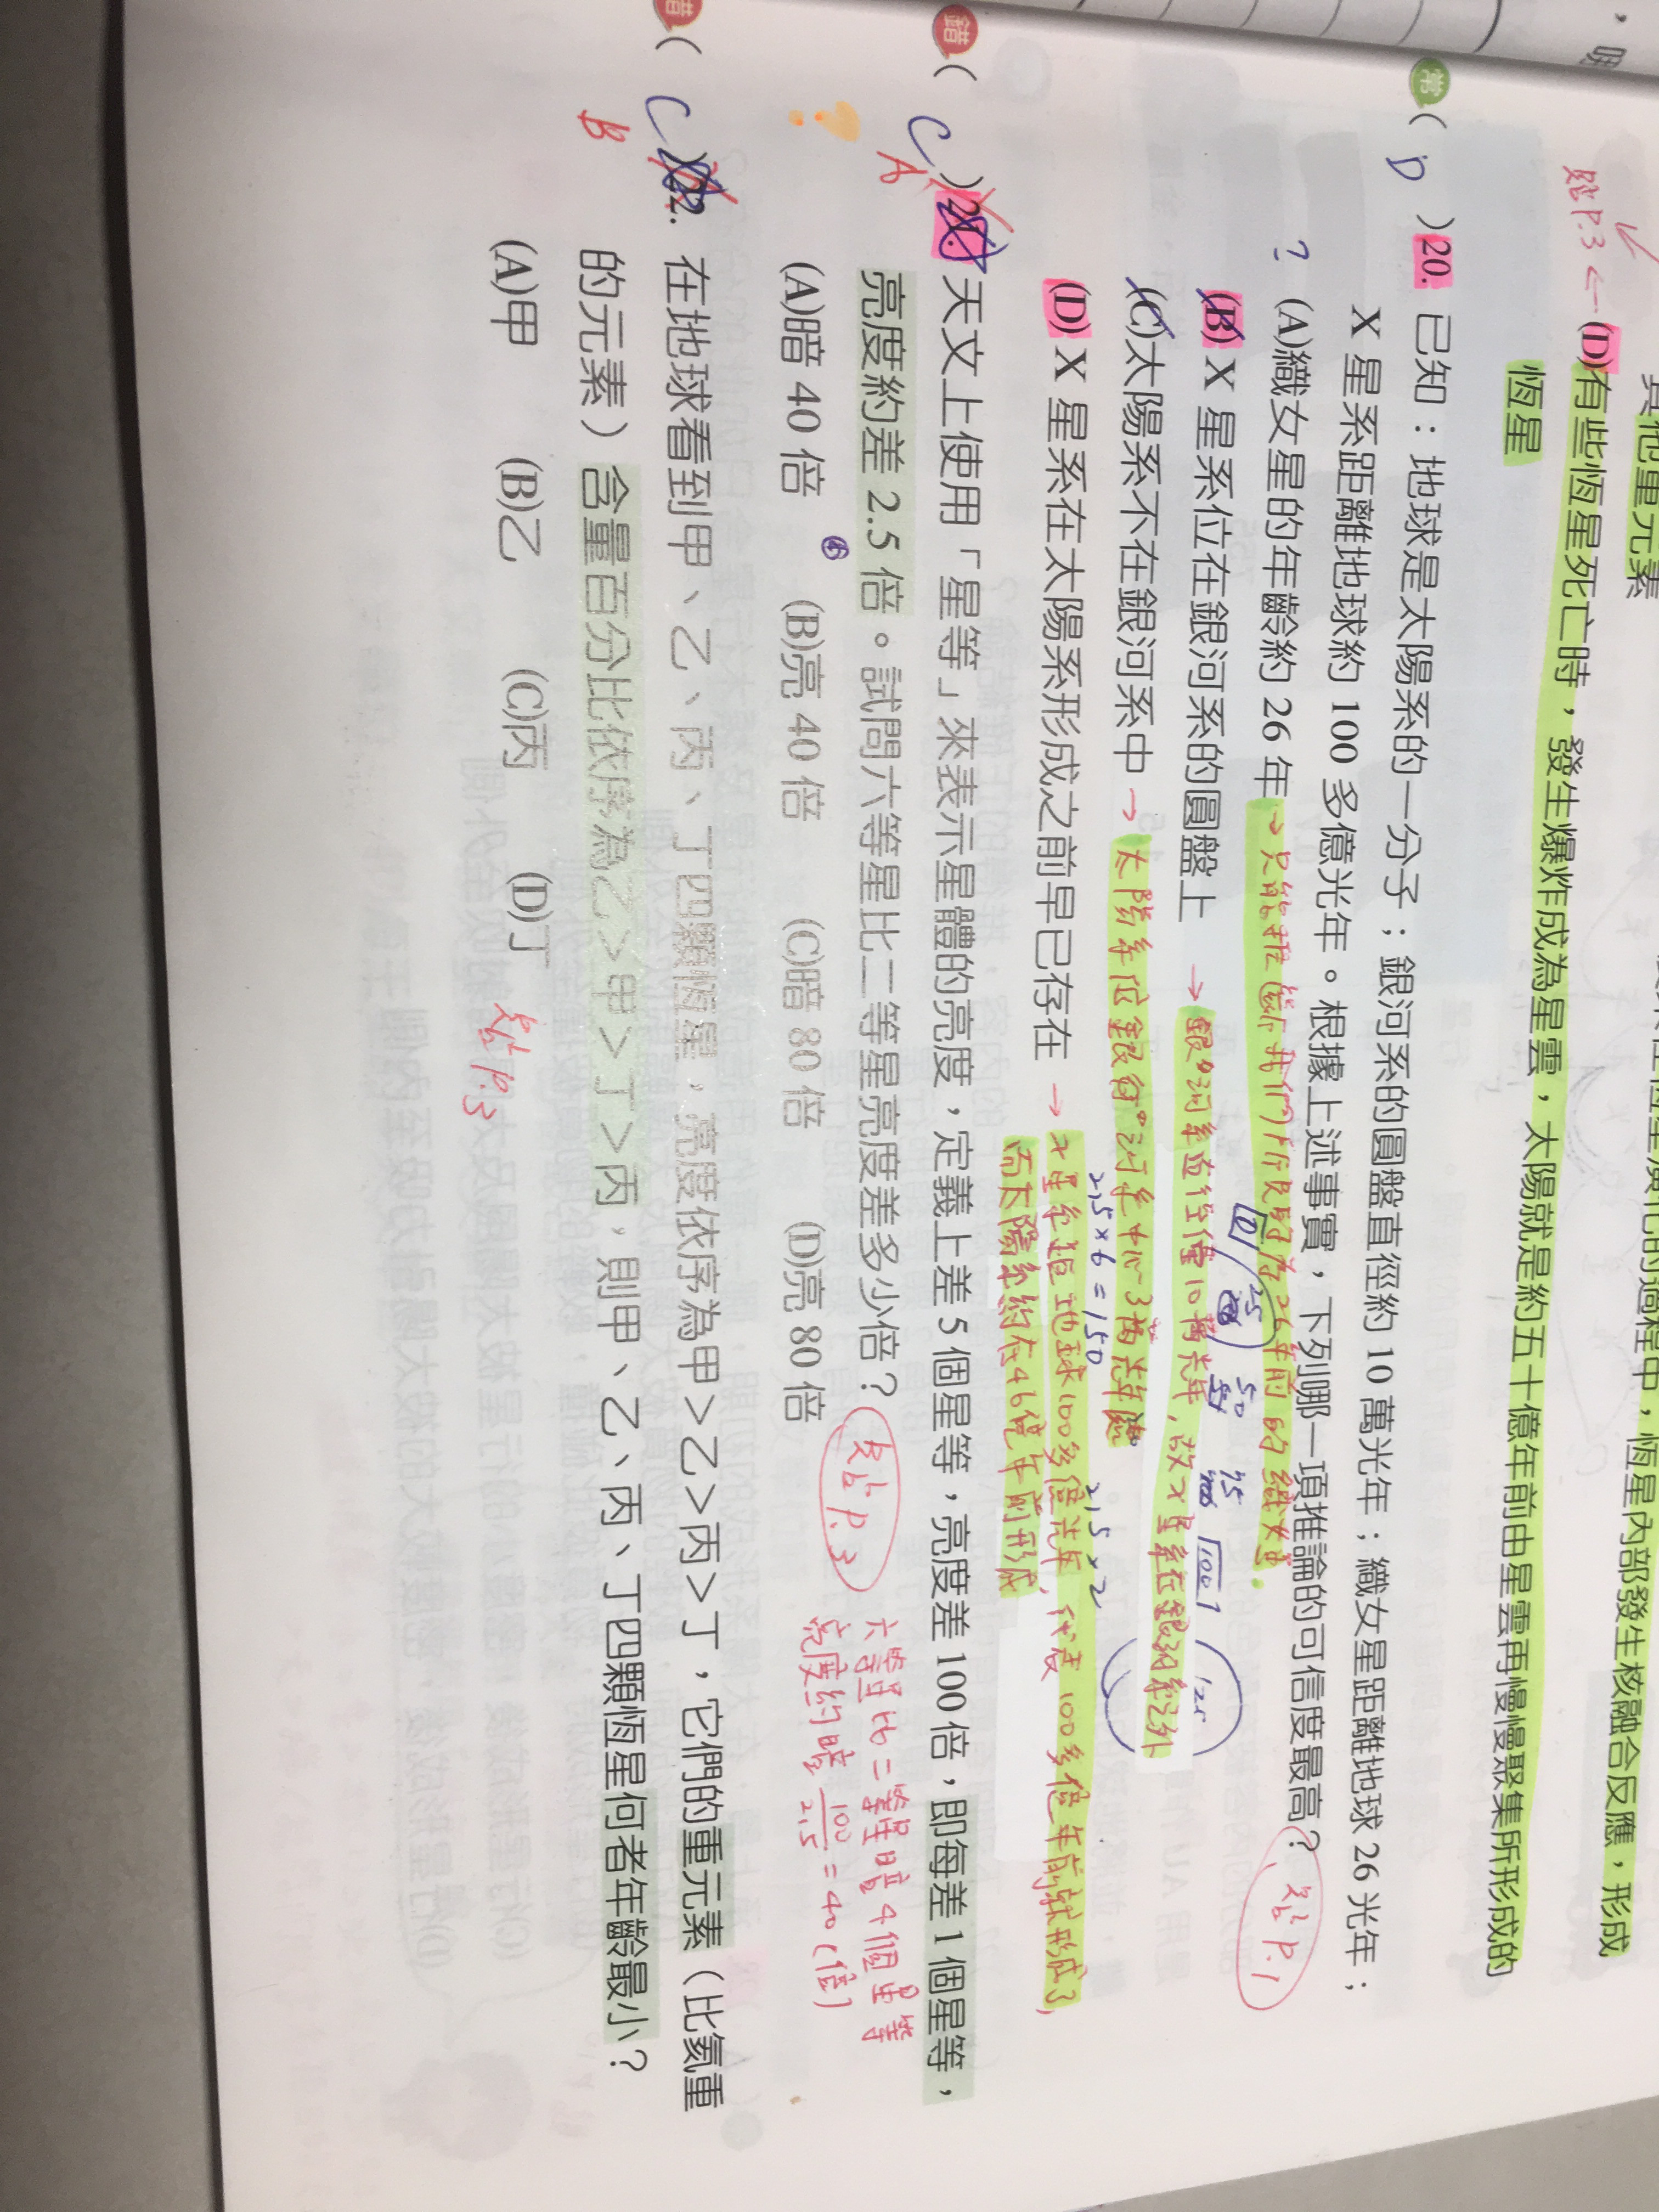 ，明
其他重元素
程中，恆星內部發生核融合反應，形成
(D)有些恆星死亡時，發生爆炸成為星雲，太陽就是約五十億年前由星雲再慢慢聚集所形成的
恆星
黏P.3 ←
常 ( D )20. 已知：地球是太陽系的一分子；銀河系的圓盤直徑約 10 萬光年；織女星距離地球 26 光年；
X 星系距離地球約 100 多億光年。根據上述事實，下列哪一項推論的可信度最高？ 黏P.1
? (A)織女星的年齡約 26 年 → 只能推斷我們所見的為26年前的織女星.
(B) X 星系位在銀河系的圓盤上 → 銀河系直徑僅10萬光年，故X星系在銀河系之外
(C)太陽系不在銀河系中 → 太陽系位銀河系中心3萬光年處
(D) X 星系在太陽系形成之前早已存在 → X星系距地球100多億光年，代表100多億年前就形成了，
而太陽系約在46億年前形成
25 50 75 100 125
2.5×6=150 2.5×2
錯 ( C )21. 天文上使用「星等」來表示星體的亮度，定義上差 5 個星等，亮度差 100 倍，即每差 1 個星等，
A 亮度約差 2.5 倍。試問六等星比二等星亮度差多少倍？ 黏P.3
? (A)暗 40 倍 (B)亮 40 倍 (C)暗 80 倍 (D)亮 80 倍
六等星比二等星暗4個星等
亮度約暗 100/2.5 = 40 (倍)
錯 ( C )22. 在地球看到甲、乙、丙、丁四顆恆星，亮度依序為甲＞乙＞丙＞丁，它們的重元素（比氦重
B 的元素）含量百分比依序為乙＞甲＞丁＞丙，則甲、乙、丙、丁四顆恆星何者年齡最小？
(A)甲 (B)乙 (C)丙 (D)丁 黏P.3